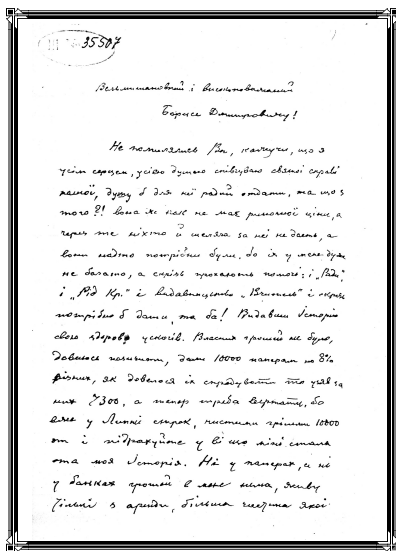 35507
Вельмишановний і високоповажаний
Борисе Дмитровичу!
Не помилялись Ви, кажучи, що я
усім серцем, усією думою співчуваю святій справі
нашої, душу б для неї радий оддати, та що з
того?! вона ж так не має ринкової ціни, а
через те ніхто й шеляга за неї не дасть, а
вони надто потрібні були, бо їх у мене дуже
не багато, а скрізь прохають помочі: і "Рада",
і "Рід Кр." і видавництво і скрізь
потрібно б дати, та ба! Видавши Історію
свою здоров. Власних грошей не було,
довелося позичити, дали 10000 паперам по 8%
різних, як довелося їх спродувати то узяв за
них 7300, а тепер треба вертати, бо
вже у Липні строк, чистими грішми 10000
от і підрахуйте у ві що мені стала
ота моя Історія. Ні у паперах, а ні
у банках грошей в мене нема, живу
тільки з аренди, більша частина якої